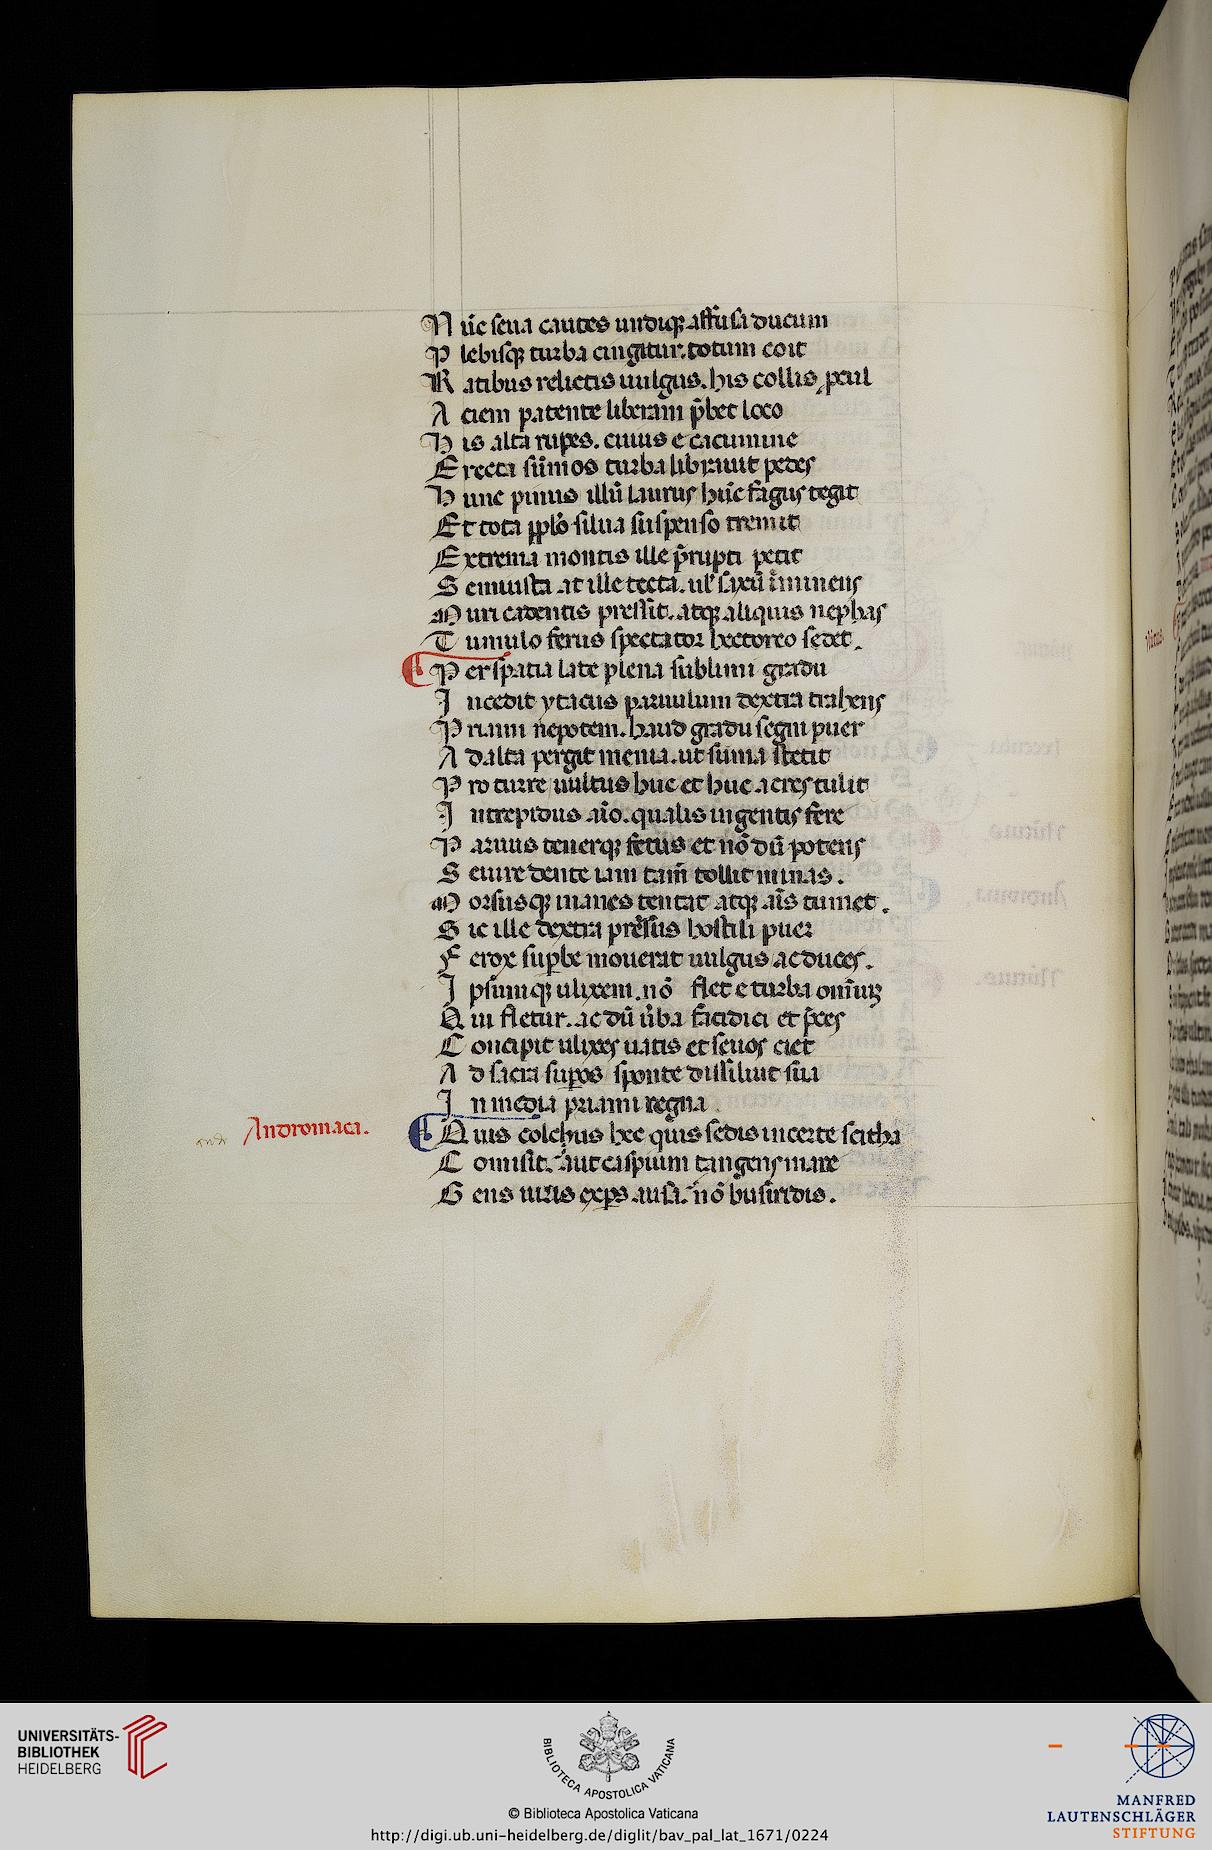 N ūc seua cautes undiqꝫ affusa ducum
P lebisqꝫ turba cingitur. totum coit
R atibus relictis uulgus. his collis ꝓcul
A ciem patente liberam p̄bet loco
H is alta rupes. cuius e cacumine
E recta sūmos turba librauit pedes
H unc pinus illū laurus hūc fagus tegit
Et tota pplō silua suspenso tremit
E xtrema montis ille p̄rupti petit
S emiusta at ille tecta. ul' saxū īminens
M uri cadentis pressit. atqꝫ aliquis nephas
T umulo ferus spectator hectoreo sedet.
P er spatia late plena sublimi gradu
I ncedit ytacus paruulum dextra trahens
P riami nepotem. haud gradu segni puer
A d alta pergit menia. ut sūma stetit
P ro turre uultus huc et huc acres tulit
I ntrepidus aīo. qualis ingentis fere
P aruus tenerqꝫ fetus et nōdū potens
S euire dente iam tam̄ tollit minas.
M orsusqꝫ inanes temtat atqꝫ aīs tumet.
S ic ille dextra prēsus hostili puer
F erox suꝑbe mouerat uulgus ac duces.
I psumqꝫ ulixem. nō flet e turba omīuꝫ
Q ui fletur. ac dū ūba fatidici et p̄ces
C oncipit ulixes uatis et seuos ciet
A d sacra suꝑos sponte dissiliuit sua
I n media priami regna.
Andromaca.
Q uis colchus hec quis sedis incerte scitha
C omisit. aut caspium tangens mare
G ens iuris exꝑs ausa. nō busiridis.
UNIVERSITÄTS-
BIBLIOTHEK
HEIDELBERG
BIBLIOTECA APOSTOLICA VATICANA
© Biblioteca Apostolica Vaticana
http://digi.ub.uni-heidelberg.de/diglit/bav_pal_lat_1671/0224
MANFRED
LAUTENSCHLÄGER
STIFTUNG